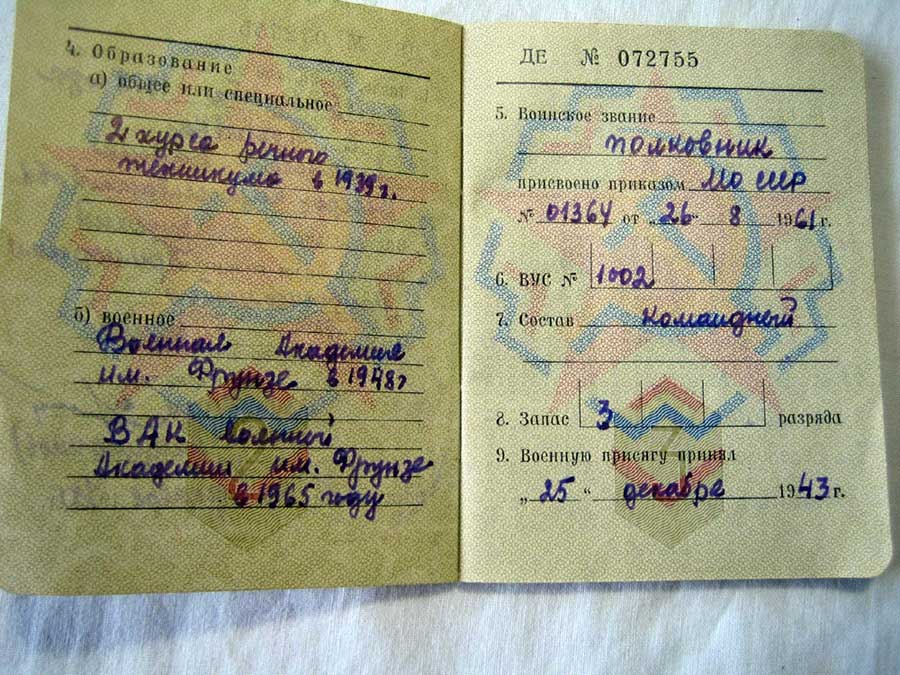 4. Образование
а) общее или специальное
2 курса речного
техникума в 1939 г.
б) военное
Военная Академия
им. Фрунзе в 1948 г
ВАК Военной
Академии им. Фрунзе
в 1965 году
ДЕ № 072755
5. Воинское звание
полковник
присвоено приказом МО СССР
№ 01364 от „26" 8 1961 г.
6. ВУС № 1002
7. Состав командный
8. Запас 3 разряда
9. Военную присягу принял
„25" декабря 1943 г.